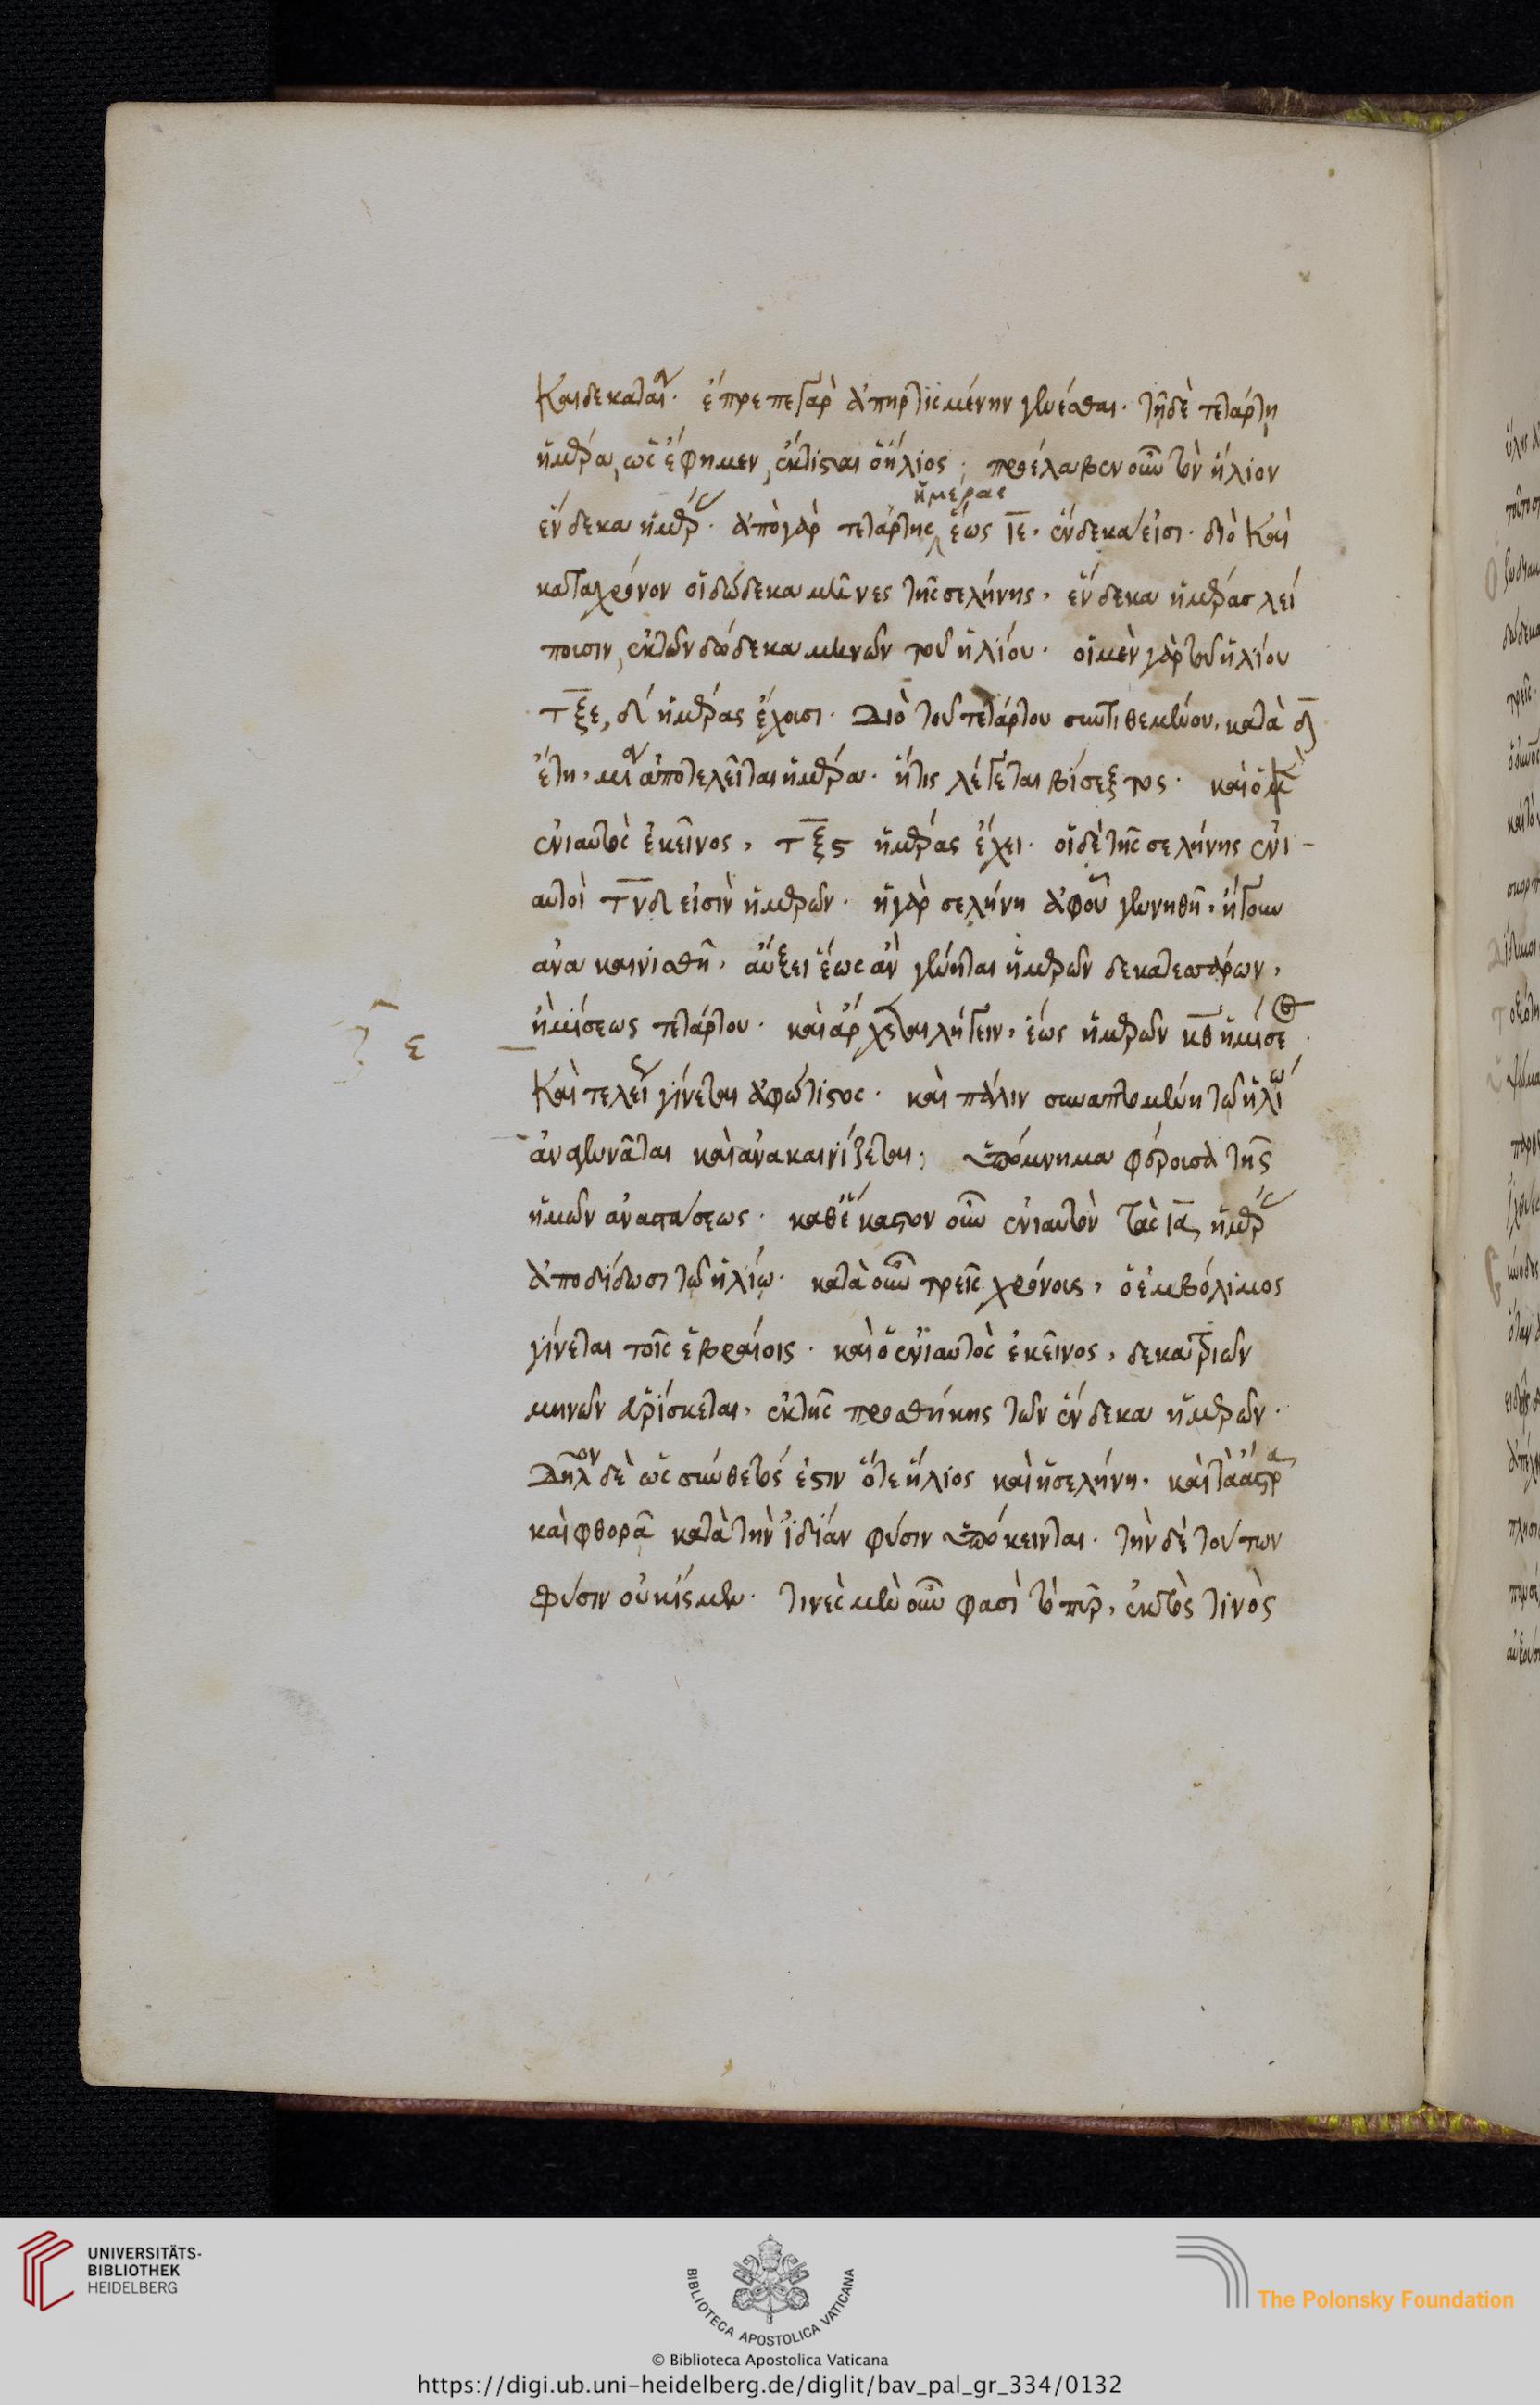 καιδεκαταῖαν. ἔπρεπε γὰρ ἀπηρτισμένην γενέσθαι. τῇ δὲ τετάρτῃ
ἡμέρα, ὡς ἔφημεν, ἔκτισται ὁ ἥλιος· προέλαβεν οὖν τὸν ἥλιον
ἕνδεκα ἡμέρας. ἀπὸ γὰρ τετάρτης ἡμέρας ἕως ιε. ἕνδεκα εἰσι. διὸ καὶ
κατα χρόνον οἱ δώδεκα μῆνες τῆς σελήνης, ἕνδεκα ἡμέρας λεί
πουσιν, ἐκ τῶν δώδεκα μηνῶν τοῦ ἡλίου. οἱ μὲν γὰρ τοῦ ἡλίου
τξε, δ´ ἡμέρας ἔχουσι. Διὸ τοῦ τετάρτου συντιθεμένου, κατὰ δ
ἔτη, μίαν ἀποτελεῖται ἡμέρα. ἥτις λέγεται βίσεξτος. καὶ ὁ
ἐνιαυτὸς ἐκεῖνος, τξς ἡμέρας ἔχει. οἱ δὲ τῆς σελήνης ἐνι-
αυτοὶ τνδ εἰσὶν ἡμερῶν. ἡ γὰρ σελήνη ἀφ οὗ γεννηθῇ, ἤγουν
ἀνακαινισθῇ, αὔξει ἕως ἂν γένηται ἡμερῶν δεκατεσσάρων,
ἡμίσεως τετάρτου. καὶ ἄρχεται λήγειν, ἕως ἡμερῶν κθ ἡμίσε
ε
Καὶ τελεῖ γίνεται ἀφώτιστος. καὶ πάλιν συναπτομένη τῷ ἡλίω
ἀναγεννᾶται καὶ ἀνακαινίζεται, ὑπόμνημα φέρουσα τῆς
ἡμῶν ἀναστάσεως. καθ ἕκαστον οὖν ἐνιαυτὸν τὰς ια ἡμέρας
ἀποδίδωσι τῷ ἡλίῳ. κατὰ οὖν τρεῖς χρόνους, ὁ ἐμβόλιμος
γίνεται τοῖς ἑβραίοις. καὶ ὁ ἐνιαυτὸς ἐκεῖνος, δεκατριῶν
μηνῶν εὑρίσκεται, ἐκ τῆς προσθήκης τῶν ἕνδεκα ἡμερῶν.
Δῆλον δὲ ὡς σύνθετός ἐστιν ὅ τε ἥλιος καὶ ἡ σελήνη, καὶ τὰ ἄστρα
καὶ φθορᾷ κατὰ τὴν ἰδίαν φύσιν ὑπόκεινται. τὴν δὲ τούτων
φύσιν οὐκ ἴσμεν. τινὲς μὲν οὖν φασὶ τὸ πῦρ, ἐκτός τινὸς
UNIVERSITÄTS-
BIBLIOTHEK
HEIDELBERG
BIBLIOTECA APOSTOLICA VATICANA
The Polonsky Foundation
© Biblioteca Apostolica Vaticana
https://digi.ub.uni-heidelberg.de/diglit/bav_pal_gr_334/0132